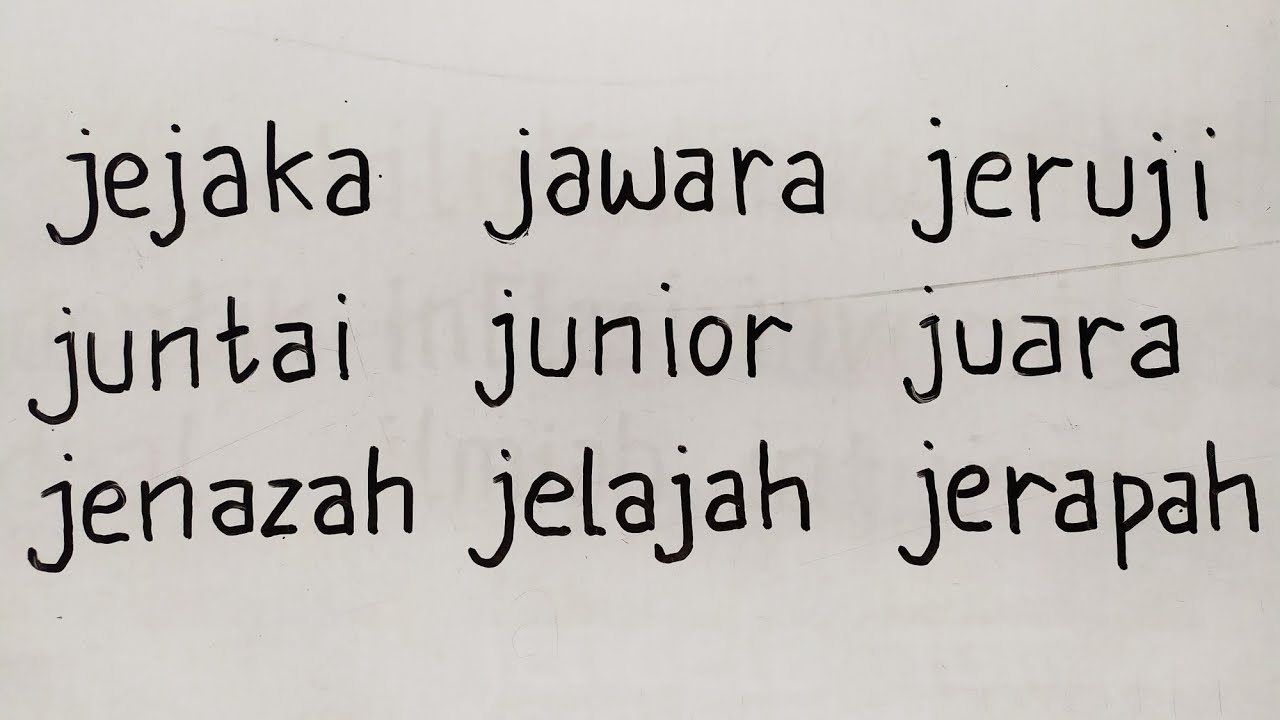 jejaka jawara jeruji
juntai junior juara
jenazah jelajah jerapah